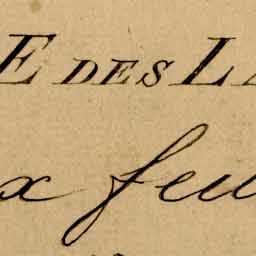 E DES L
x feu